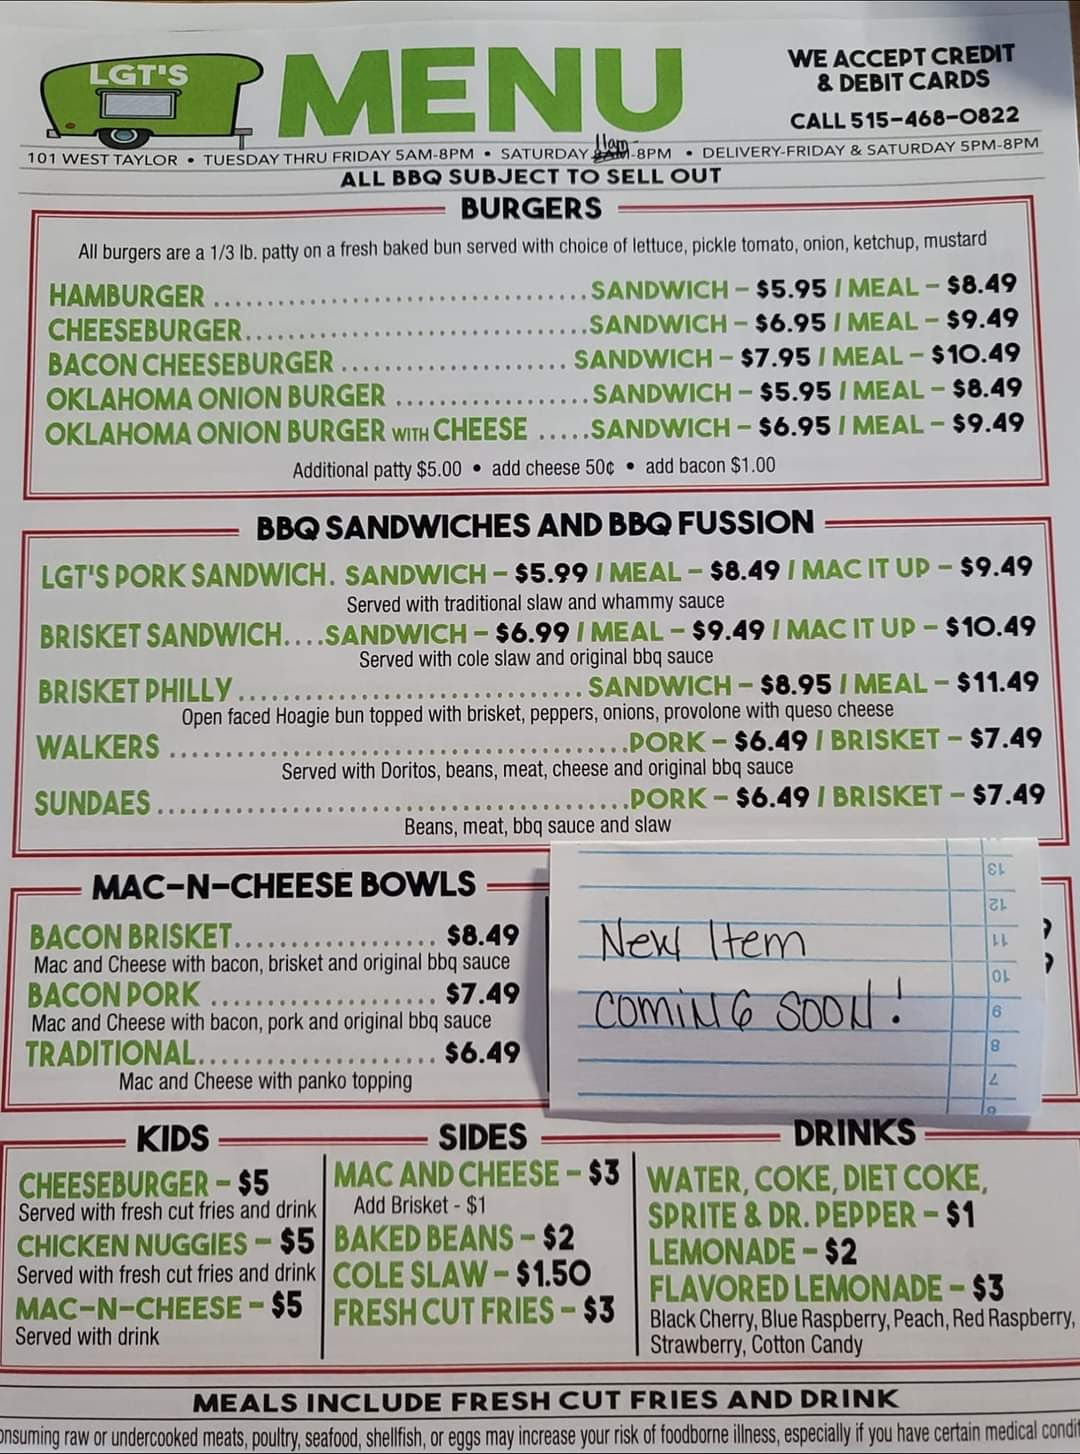 LGT'S
MENU
WE ACCEPT CREDIT
& DEBIT CARDS
CALL 515-468-0822
101 WEST TAYLOR • TUESDAY THRU FRIDAY 5AM-8PM • SATURDAY 11am-8PM • DELIVERY-FRIDAY & SATURDAY 5PM-8PM
ALL BBQ SUBJECT TO SELL OUT
BURGERS
All burgers are a 1/3 lb. patty on a fresh baked bun served with choice of lettuce, pickle tomato, onion, ketchup, mustard
HAMBURGER ................................... SANDWICH – $5.95 / MEAL – $8.49
CHEESEBURGER................................SANDWICH – $6.95 / MEAL – $9.49
BACON CHEESEBURGER ..................... SANDWICH – $7.95 / MEAL – $10.49
OKLAHOMA ONION BURGER ..................SANDWICH – $5.95 / MEAL – $8.49
OKLAHOMA ONION BURGER WITH CHEESE .....SANDWICH – $6.95 / MEAL – $9.49
Additional patty $5.00 • add cheese 50¢ • add bacon $1.00
BBQ SANDWICHES AND BBQ FUSSION
LGT'S PORK SANDWICH. SANDWICH – $5.99 / MEAL – $8.49 / MAC IT UP – $9.49
Served with traditional slaw and whammy sauce
BRISKET SANDWICH....SANDWICH – $6.99 / MEAL – $9.49 / MAC IT UP – $10.49
Served with cole slaw and original bbq sauce
BRISKET PHILLY................................ SANDWICH – $8.95 / MEAL – $11.49
Open faced Hoagie bun topped with brisket, peppers, onions, provolone with queso cheese
WALKERS ..........................................PORK – $6.49 / BRISKET – $7.49
Served with Doritos, beans, meat, cheese and original bbq sauce
SUNDAES...........................................PORK – $6.49 / BRISKET – $7.49
Beans, meat, bbq sauce and slaw
MAC-N-CHEESE BOWLS
BACON BRISKET.................. $8.49
Mac and Cheese with bacon, brisket and original bbq sauce
BACON PORK .................... $7.49
Mac and Cheese with bacon, pork and original bbq sauce
TRADITIONAL..................... $6.49
Mac and Cheese with panko topping
13
12
11
10
9
8
7
6
New Item
COMING SOON!
KIDS
CHEESEBURGER – $5
Served with fresh cut fries and drink
CHICKEN NUGGIES – $5
Served with fresh cut fries and drink
MAC-N-CHEESE – $5
Served with drink
SIDES
MAC AND CHEESE – $3
Add Brisket - $1
BAKED BEANS – $2
COLE SLAW – $1.50
FRESH CUT FRIES – $3
DRINKS
WATER, COKE, DIET COKE,
SPRITE & DR. PEPPER – $1
LEMONADE – $2
FLAVORED LEMONADE – $3
Black Cherry, Blue Raspberry, Peach, Red Raspberry,
Strawberry, Cotton Candy
MEALS INCLUDE FRESH CUT FRIES AND DRINK
onsuming raw or undercooked meats, poultry, seafood, shellfish, or eggs may increase your risk of foodborne illness, especially if you have certain medical condit